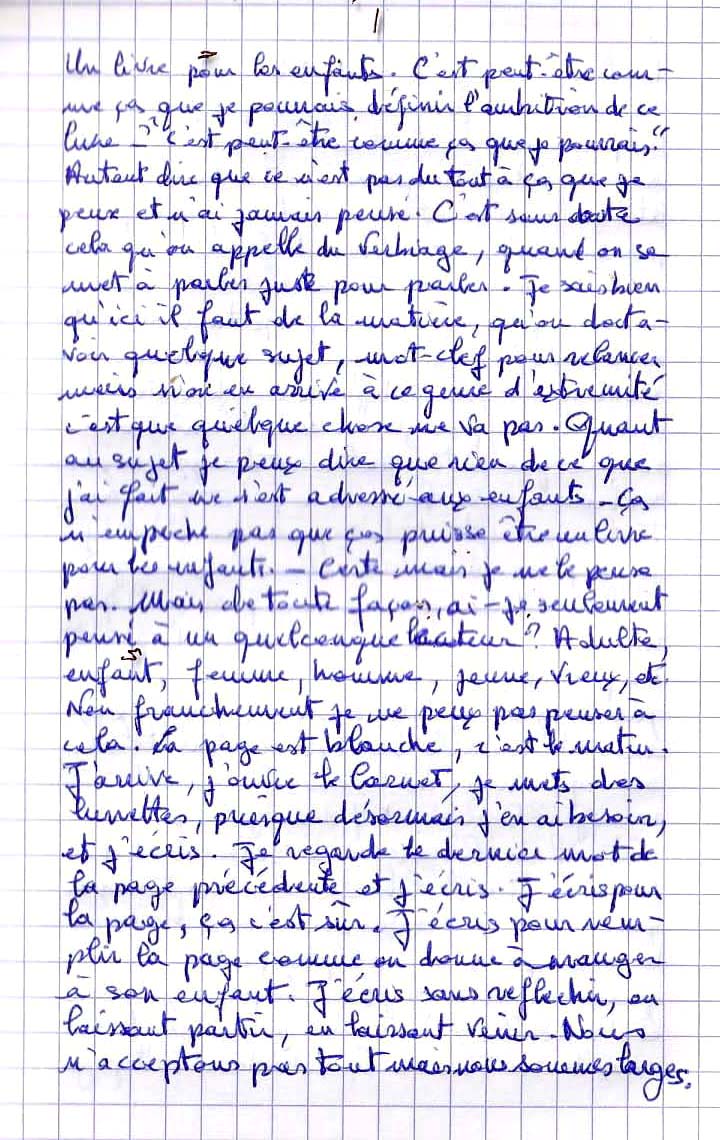 1
Un livre pour les enfants. C'est peut-être com-
me ça que je pourrais définir l'ambition de ce
livre - "c'est peut-être comme ça que je pourrais."
Autant dire que ce n'est pas du tout à ça que je
pense et n'ai jamais pensé. C'est sans doute
cela qu'on appelle du verbiage, quand on se
met à parler juste pour parler. Je sais bien
qu'ici il faut de la matière, qu'on doit a-
voir quelque sujet, mot-clef pour relancer
mais si on en arrive à ce genre d'extremité
c'est que quelque chose ne va pas. Quant
au sujet je peux dire que rien de ce que
j'ai fait ne s'est adressé aux enfants - ça
n'empeche pas que ça puisse être un livre
pour les enfants. - Certe mais je ne le pense
pas. Mais de toute façon, ai-je seulement
pensé à un quelconque lecteur ? Adulte,
enfant, femme, homme, jeune, vieux, etc.
Non franchement je ne peux pas penser à
cela. La page est blanche, c'est le matin.
J'arrive, j'ouvre le carnet, je mets des
lunettes, puisque désormais j'en ai besoin,
et j'écris. Je regarde le dernier mot de
la page précédente et j'écris. J'écris pour
la page, ça c'est sûr. J'écris pour rem-
plir la page comme on donne à manger
à son enfant. J'écris sans reflechir, en
laissant partir, en laissant venir. Nous
n'acceptons pas tout mais nous sommes larges.